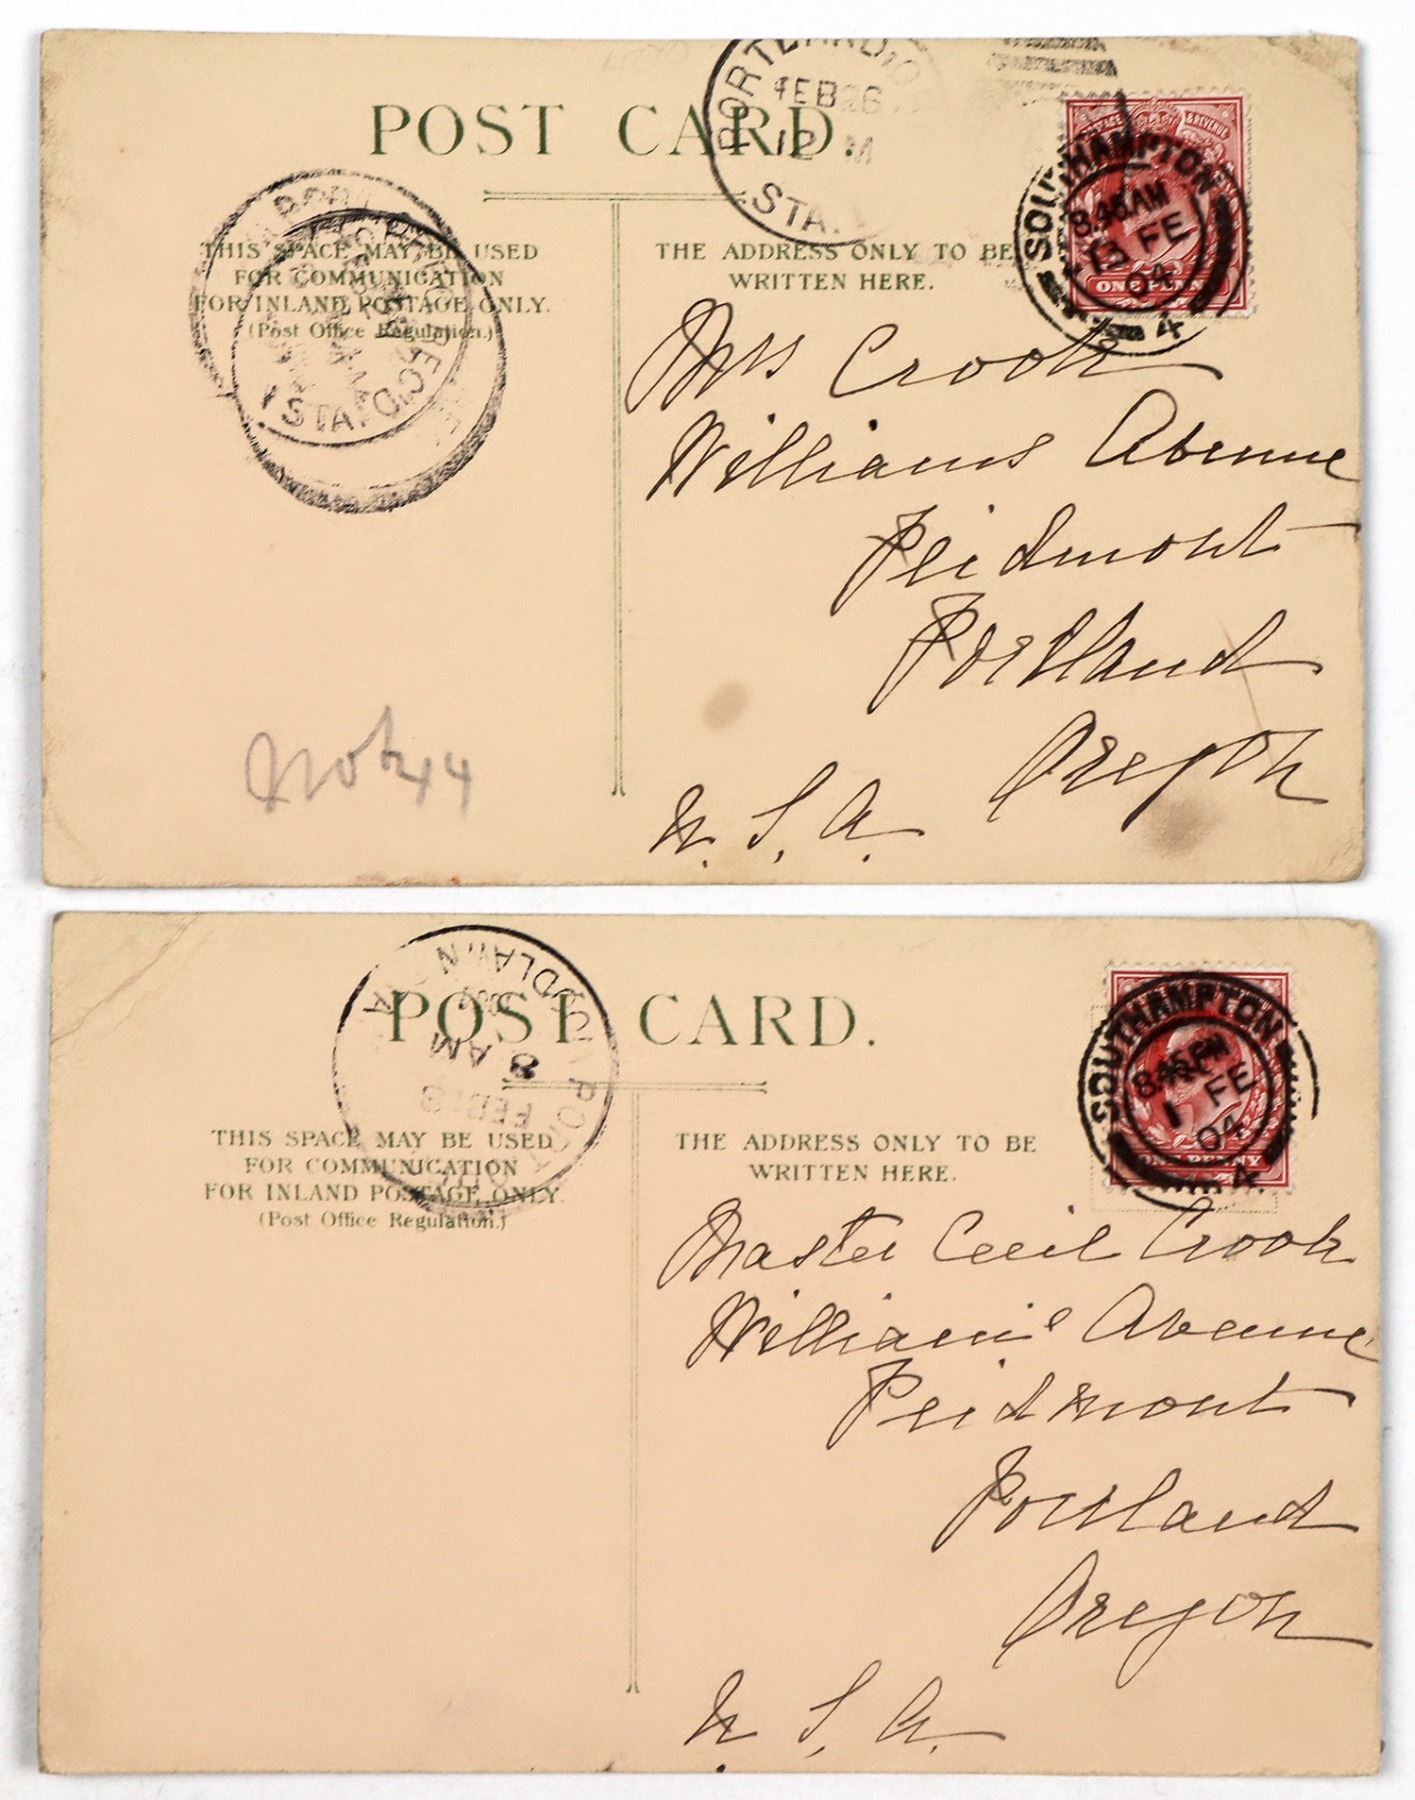 PORTLAND, O
FEB 26
12 M
STA.
POST CARD.
ONE PENNY
SOUTHAMPTON
8.45 AM
13 FE
04
4
THIS SPACE MAY BE USED
FOR COMMUNICATION
FOR INLAND POSTAGE ONLY.
(Post Office Regulation.)
STA.
REC'D
THE ADDRESS ONLY TO BE
WRITTEN HERE.
Mrs Crook
Williams Avenue
Peidmont
Portland
Oregon
U. S. A.
POST CARD.
8 AM
FEB 18
SOUTHAMPTON
8.45 PM
1 FE
04
4
ONE PENNY
THIS SPACE MAY BE USED
FOR COMMUNICATION
FOR INLAND POSTAGE ONLY.
(Post Office Regulation.)
THE ADDRESS ONLY TO BE
WRITTEN HERE.
Master Cecil Crook
Williams Avenue
Peidmont
Portland
Oregon
U. S. A.